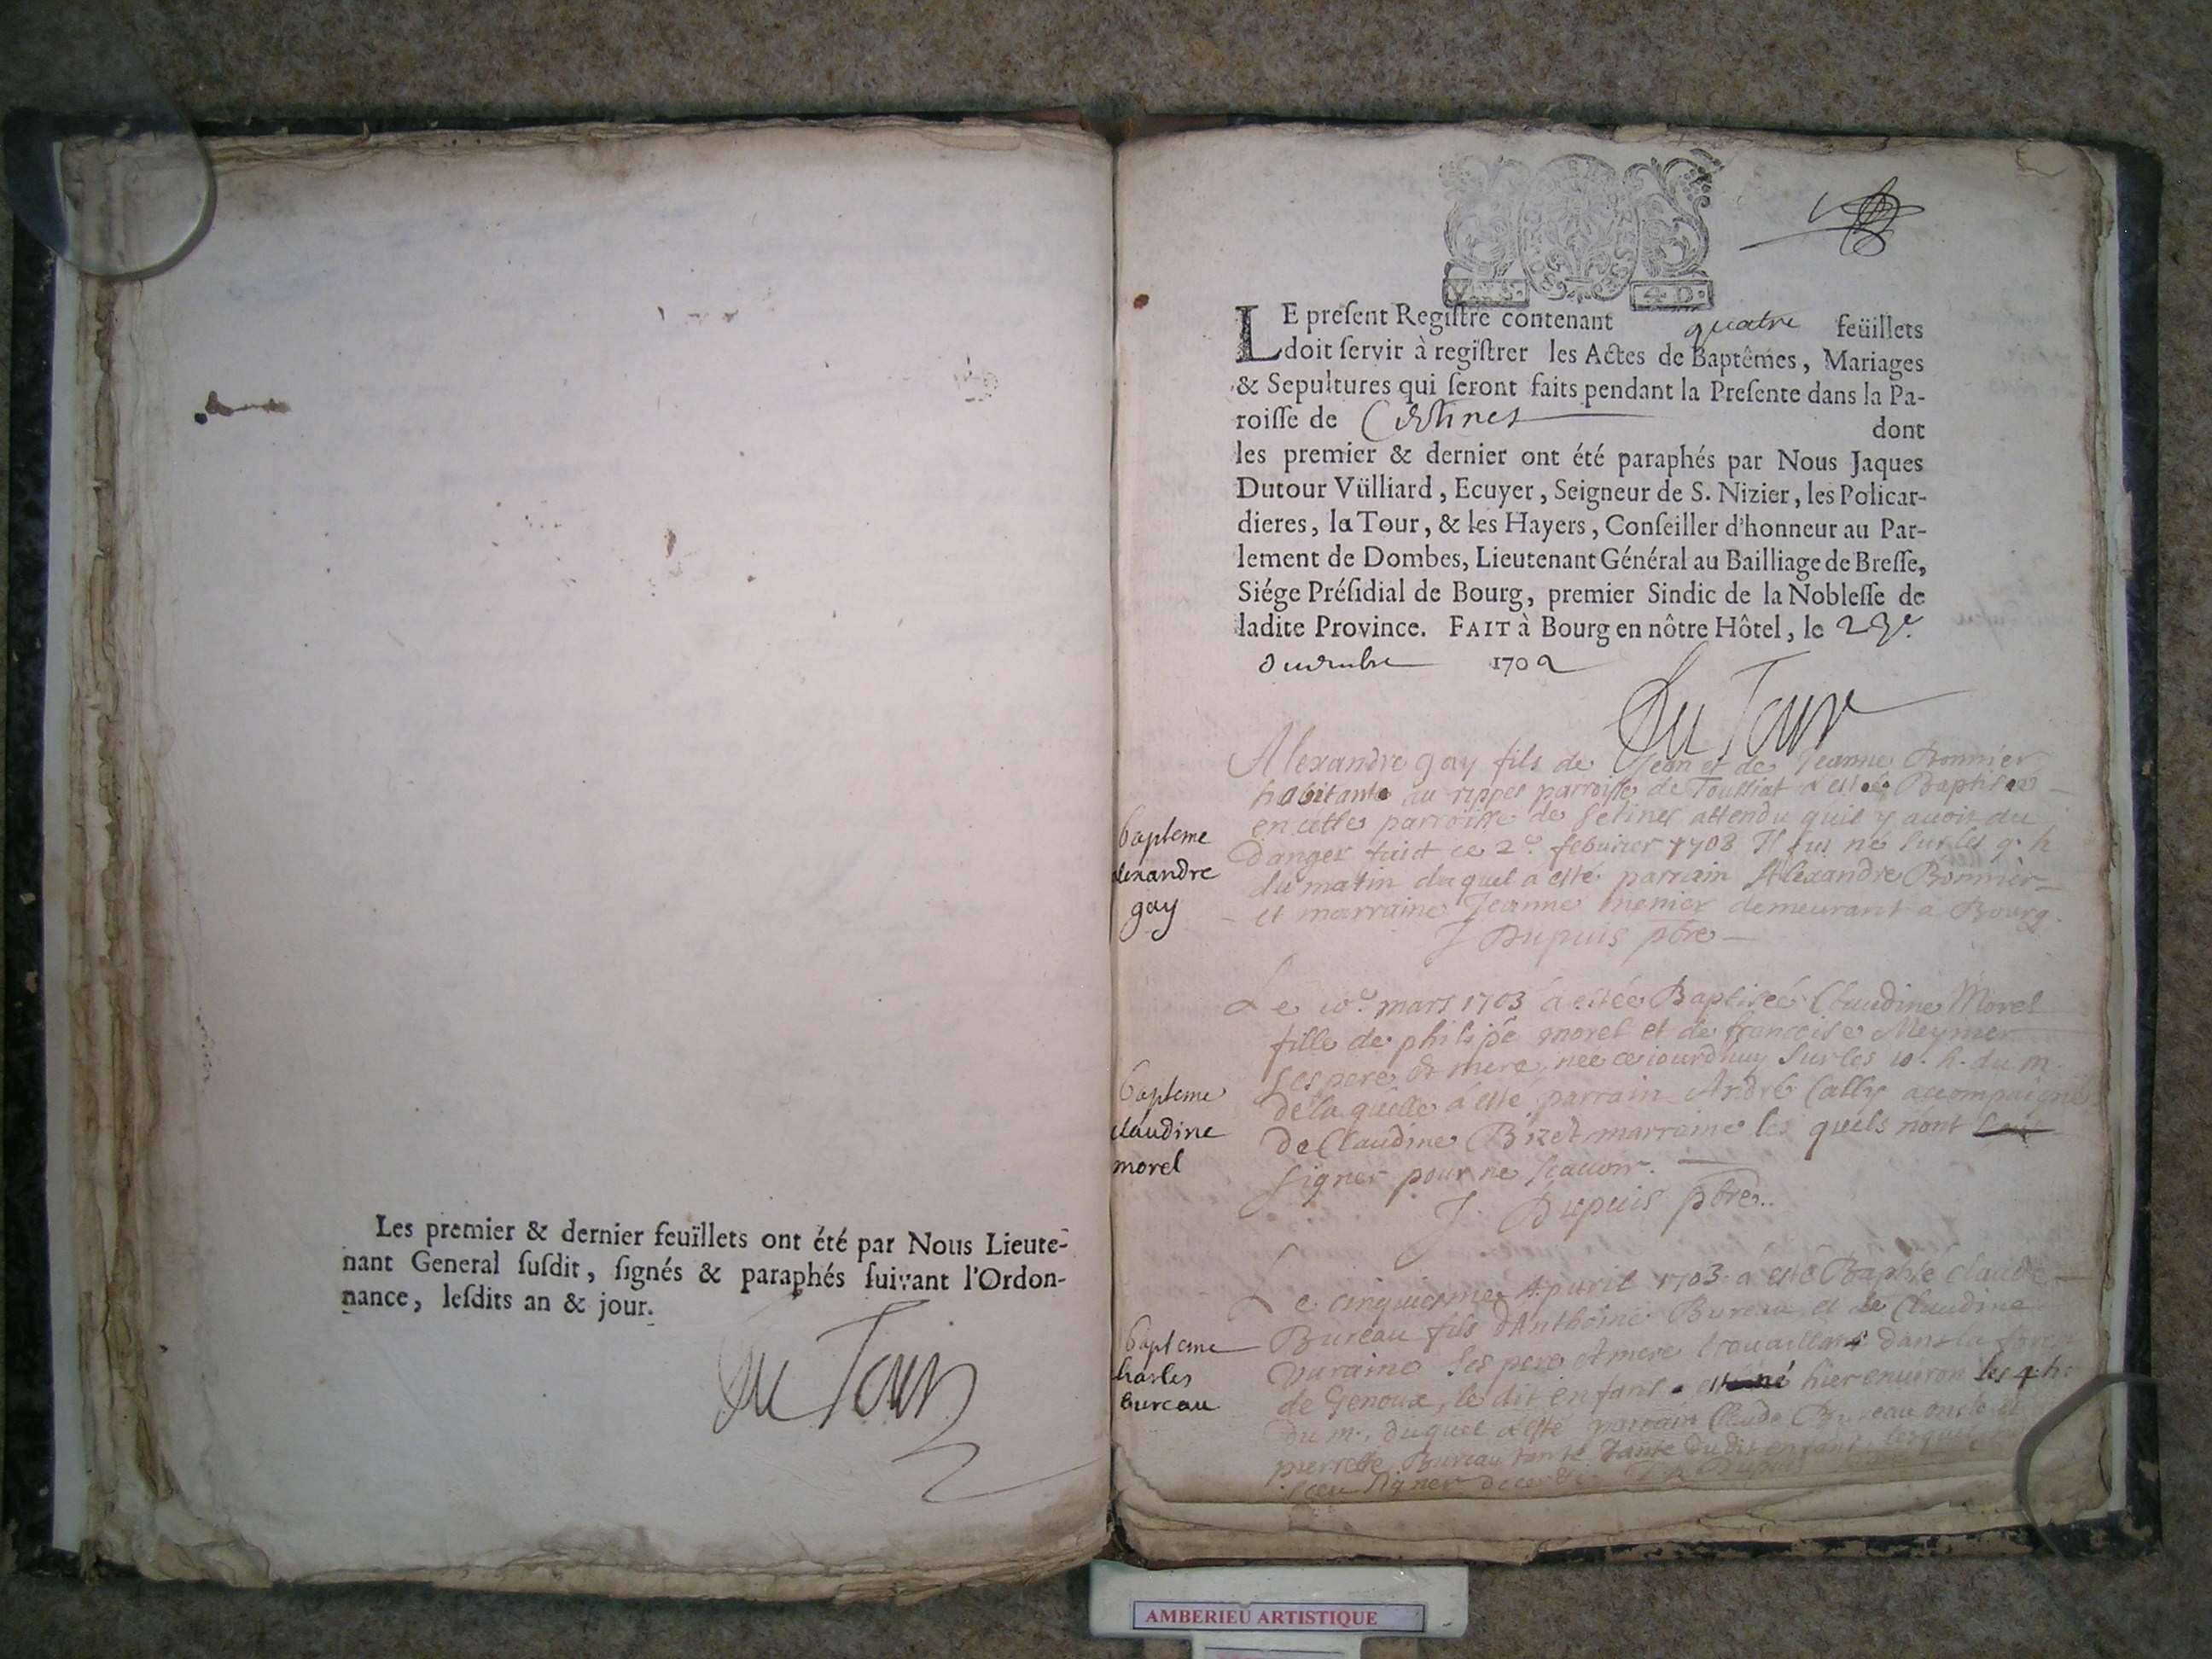 Les premier & dernier feuïllets ont été par Nous Lieute-
nant General susdit, signés & paraphés suivant l'Ordon-
nance, lesdits an & jour.
Du Tour
VN S. 4 D.
LE present Registre contenant quatre feüillets
doit servir à registrer les Actes de Baptêmes, Mariages
& Sepultures qui seront faits pendant la Presente dans la Pa-
roisse de dont
les premier & dernier ont été paraphés par Nous Jaques
Dutour Vülliard, Ecuyer, Seigneur de S. Nizier, les Policar-
dieres, la Tour, & les Hayers, Conseiller d'honneur au Par-
lement de Dombes, Lieutenant Général au Bailliage de Bresse,
Siége Présidial de Bourg, premier Sindic de la Noblesse de
ladite Province. FAIT à Bourg en nôtre Hôtel, le 23e.
1702
Du Tour
bapteme
alexandre
gay
Alexandre gay fils de Jean et de Jeanne Bonnier
habitants au rippes parroisse de Toussiat a esté Baptisee
en cette parroisse de Setines attendu quil y avoit du
danger fait ce 2e. febvrier 1703 Il fut né sur les 9. h
du matin duquel a esté parrain Alexandre Bonnier
et marraine Jeanne menier demeurant a Bourg.
J Dupuis pbre
bapteme
claudine
morel
Le 10e. mars 1703 a estée Baptiseé Claudine Morel
fille de philipe morel et de francoise Meynier
ses pere et mere, neé ce iourdhuy sur les 10. h. du m.
de la quelle a esté parrain André Cally accompaigné
de Claudine Bizet marraine les quels n'ont
signer pour ne scavoir.
J. Dupuis pbre..
bapteme
charles
bureau
Le cinquiesme Apuril 1703 a esté Baptisé claude
Bureau fils d'Anthoine Bureau et de Claudine
Varaine ses pere et mere travaillant dans la
de Genoux, le dit enfant est né hier environ les 4 h.
du m., duquel a esté parrain Claude Bureau oncle et
pierrette Bureau tante dudit enfant, lesquels
sceu signer de ce J. Dupuis
AMBERIEU ARTISTIQUE